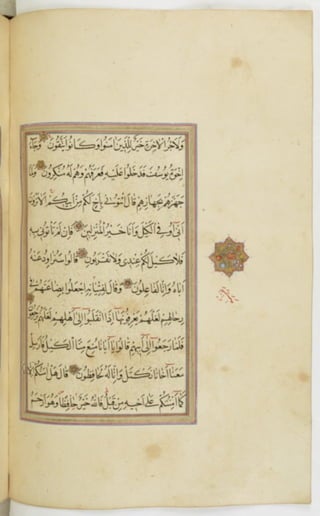 وَلَاَجْرُ الْاٰخِرَةِ خَيْرٌ لِلَّذِينَ اٰمَنُوا وَكَانُوا يَتَّقُونَ وَجَاءَ
اِخْوَةُ يُوسُفَ فَدَخَلُوا عَلَيْهِ فَعَرَفَهُمْ وَهُمْ لَهُ مُنْكِرُونَ وَلَمَّا
جَهَّزَهُمْ بِجَهَازِهِمْ قَالَ ائْتُونِي بِاَخٍ لَكُمْ مِنْ اَبِيكُمْ اَلَا تَرَوْنَ
اَنِّي اُوفِي الْكَيْلَ وَاَنَا خَيْرُ الْمُنْزِلِينَ فَاِنْ لَمْ تَاْتُونِي بِهِ
فَلَا كَيْلَ لَكُمْ عِنْدِي وَلَا تَقْرَبُونِ قَالُوا سَنُرَاوِدُ عَنْهُ
اَبَاهُ وَاِنَّا لَفَاعِلُونَ وَقَالَ لِفِتْيَانِهِ اجْعَلُوا بِضَاعَتَهُمْ فِي
رِحَالِهِمْ لَعَلَّهُمْ يَعْرِفُونَهَا اِذَا انْقَلَبُوا اِلَى اَهْلِهِمْ لَعَلَّهُمْ يَرْجِعُونَ
فَلَمَّا رَجَعُوا اِلَى اَبِيهِمْ قَالُوا يَا اَبَانَا مُنِعَ مِنَّا الْكَيْلُ فَاَرْسِلْ
مَعَنَا اَخَانَا نَكْتَلْ وَاِنَّا لَهُ لَحَافِظُونَ قَالَ هَلْ اٰمَنُكُمْ
كَمَا اَمِنْتُكُمْ عَلَى اَخِيهِ مِنْ قَبْلُ فَاللهُ خَيْرٌ حَافِظًا وَهُوَ اَرْحَمُ